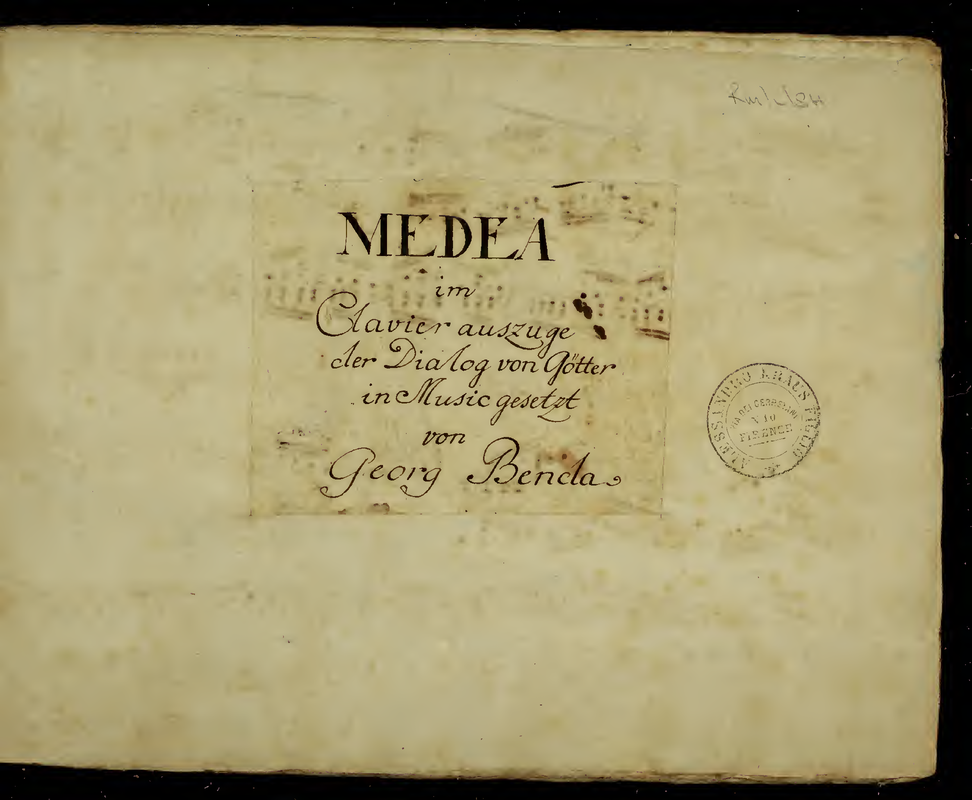 MEDEA
im
Clavier auszuge
der Dialog von Götter
in Music gesetzt
von
Georg Benda
ALESSANDRO KRAUS FIGLIO
VIA DEI CERRETANI
N 10
FIRENZE